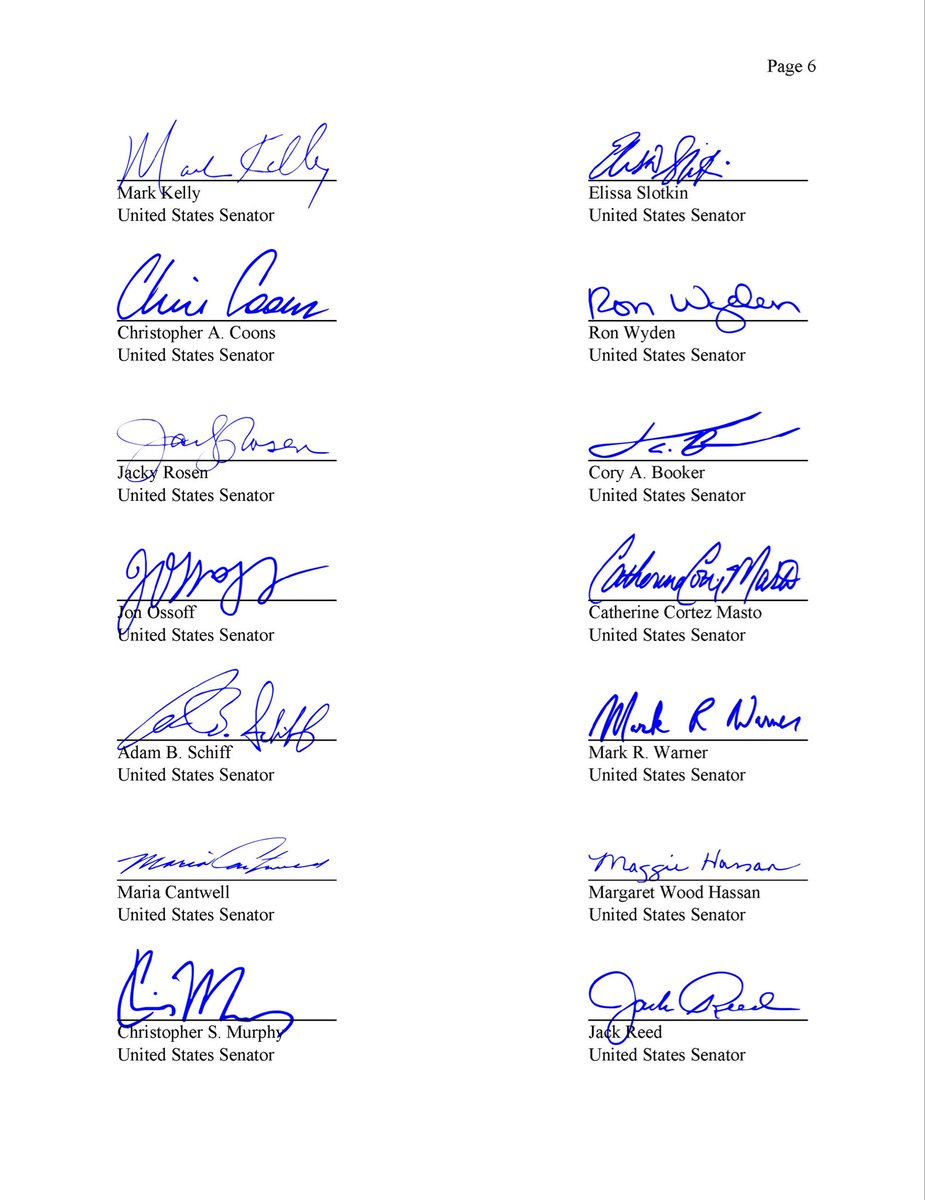 Page 6
Mark Kelly
Mark Kelly
United States Senator
Elissa Slotkin
Elissa Slotkin
United States Senator
Chris Coons
Christopher A. Coons
United States Senator
Ron Wyden
Ron Wyden
United States Senator
Jacky Rosen
Jacky Rosen
United States Senator
Cory A. Booker
United States Senator
Jon Ossoff
United States Senator
Catherine Cortez Masto
Catherine Cortez Masto
United States Senator
Adam B. Schiff
United States Senator
Mark R Warner
Mark R. Warner
United States Senator
Maria Cantwell
Maria Cantwell
United States Senator
Maggie Hassan
Margaret Wood Hassan
United States Senator
Christopher S. Murphy
United States Senator
Jack Reed
Jack Reed
United States Senator